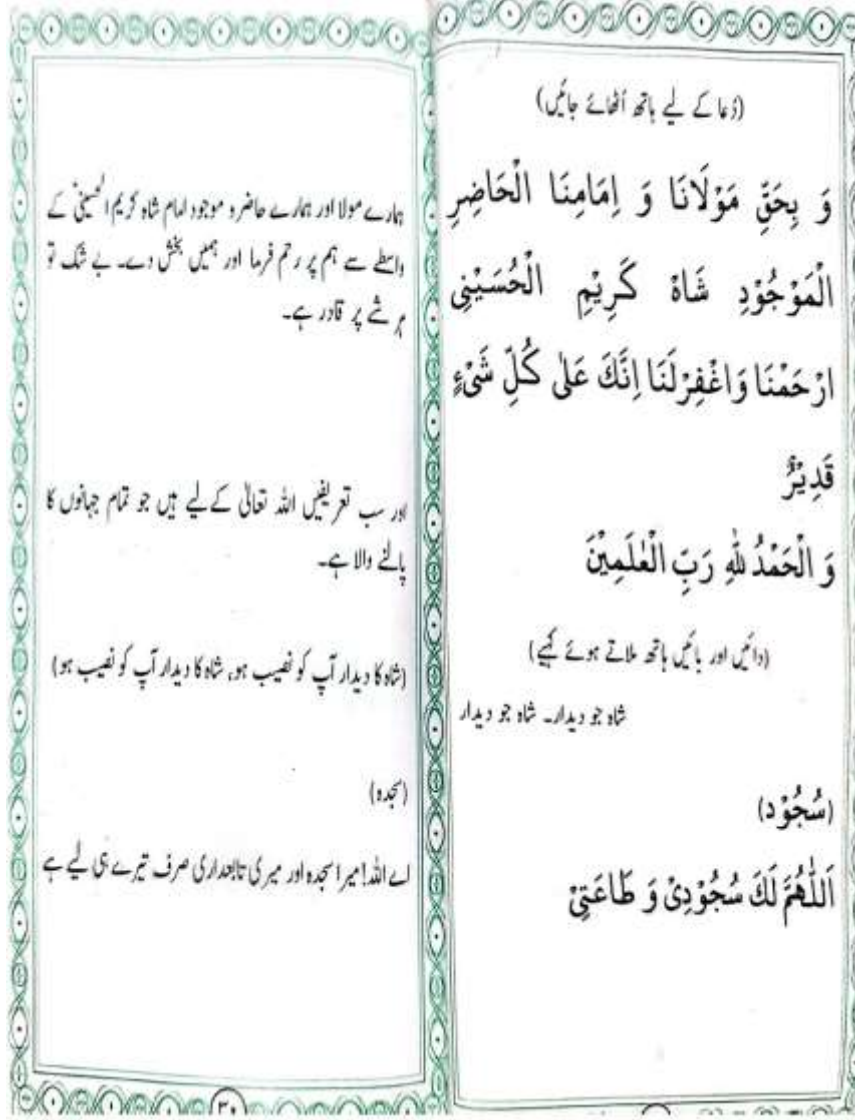 (دُعا کے لیے ہاتھ اُٹھائے جائیں)
وَ بِحَقِّ مَوْلَانَا وَ اِمَامِنَا الْحَاضِرِ
الْمَوْجُوْدِ شَاهْ كَرِيْمِ الْحُسَيْنِى
ارْحَمْنَا وَاغْفِرْلَنَا اِنَّكَ عَلٰى كُلِّ شَىْءٍ
قَدِيْرٌ
وَ الْحَمْدُ لِلّٰهِ رَبِّ الْعٰلَمِيْنَ
(دائیں اور بائیں ہاتھ ملاتے ہوئے کہیے)
شاہ جو دیدار۔ شاہ جو دیدار
(سُجُوْد)
اَللّٰهُمَّ لَكَ سُجُوْدِىْ وَ طَاعَتِىْ
ہمارے مولا اور ہمارے حاضر و موجود امام شاہ کریم الحسینیؑ کے
واسطے سے ہم پر رحم فرما اور ہمیں بخش دے۔ بے شک تو
ہر شے پر قادر ہے۔
اور سب تعریفیں اللہ تعالیٰ کے لیے ہیں جو تمام جہانوں کا
پالنے والا ہے۔
(شاہ کا دیدار آپ کو نصیب ہو، شاہ کا دیدار آپ کو نصیب ہو)
(سجدہ)
اے اللہ! میرا سجدہ اور میری تابعداری صرف تیرے ہی لیے ہے
۳۰